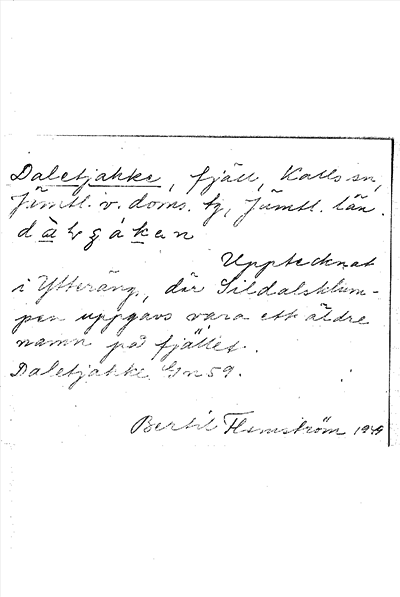 Daletjahke, fjäll, Kalls sn,
Jämtl. v. doms. tg, Jämtl. län.
Upptecknat
i Ytteräng, där Sildalsklum-
pen uppgavs vara ett äldre
namn på fjället.
Daletjahke Gn 59.
Bertil Flemström 1949